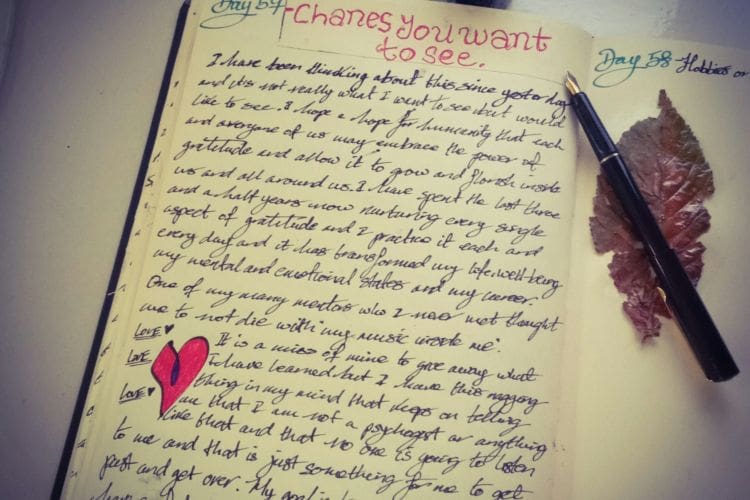 Day 57 - Chanes you want
to see.
I have been thinking about this since yesterday
and it's not really what I want to see but would
like to see. I hope a hope for humanity that each
and everyone of us may embrace the power of
gratitude and allow it to grow and florish inside
us and all around us. I have spent the last three
and a half years now nurturing every single
aspect of gratitude and I practice it each and
every day and it has transformed my life, well-being
my mental and emotional states and my career.
One of my many mentors who I never met thought
me to not die with "my music inside me".
It is a miss of mine to give away what
I have learned but I have this nagging
thing in my mind that keeps on telling
me that I am not a or anything
like that and that no one is going to listen
to me and that is just something for me to get
past and get over. My goal is
LOVE ♥
LOVE
LOVE ♥
Day 58 - Hobbies or